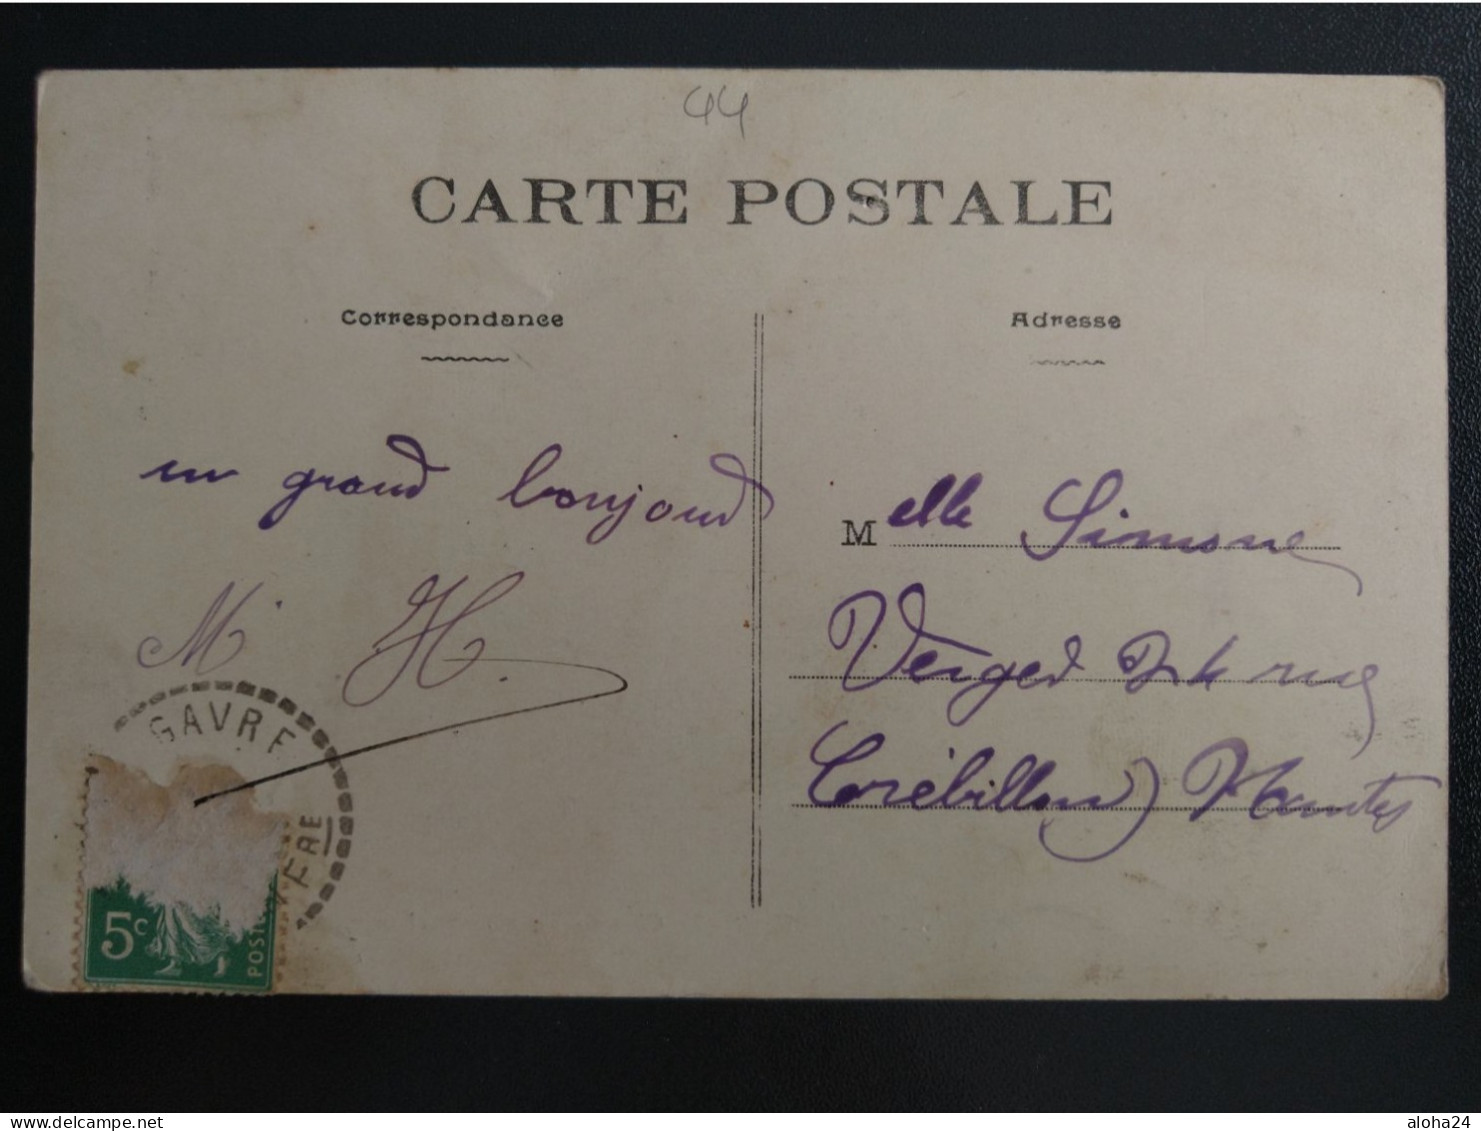 44
CARTE POSTALE
Correspondance
un grand bonjour
M. H.
GAVRE
FRE
5c
POST
Adresse
Melle Simone
Verger rue
Crébillon Nantes
www.delcampe.net
aloha24